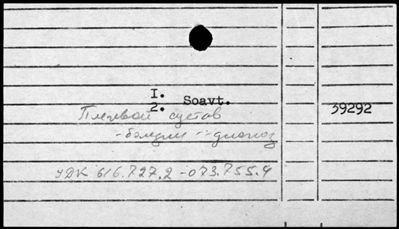 I.
2. Soavt.
Плечевой сустав 39292
-болезни -- диагноз
УДК 616.727.2-073.755.4